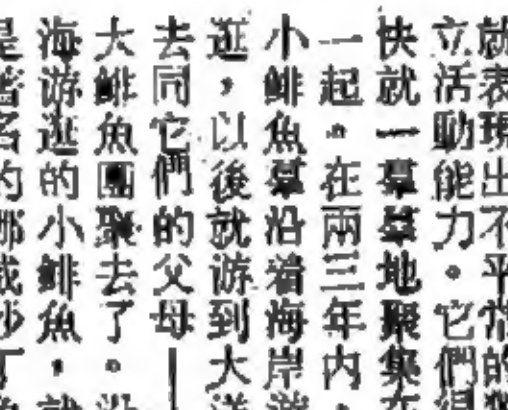 就表現出不平常的獨
立活動能力。它們很
快就一羣羣地聚集在
一起。在兩三年內，
小鯡魚羣沿着海岸游
逛，以後就游到大洋
去同它們的父母—
大鯡魚團聚去了。沿
海游逛的小鯡魚，就
是著名的挪威沙丁